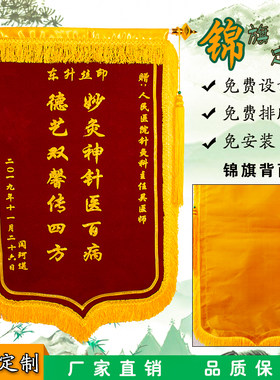 锦旗定
东升丝印
赠：人民医院针灸科主任吴医师
妙灸神针医百病
德艺双馨传四方
二〇一九年十一月二十六日
免费设
免费排
免安装
锦旗背面
定制
厂家直销
品质保